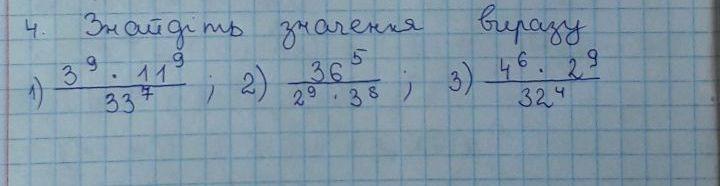 4. Знайдіть значення виразу
1) \frac{3^9 \cdot 11^9}{33^7} ; 2) \frac{36^5}{2^9 \cdot 3^8} ; 3) \frac{4^6 \cdot 2^9}{32^4}